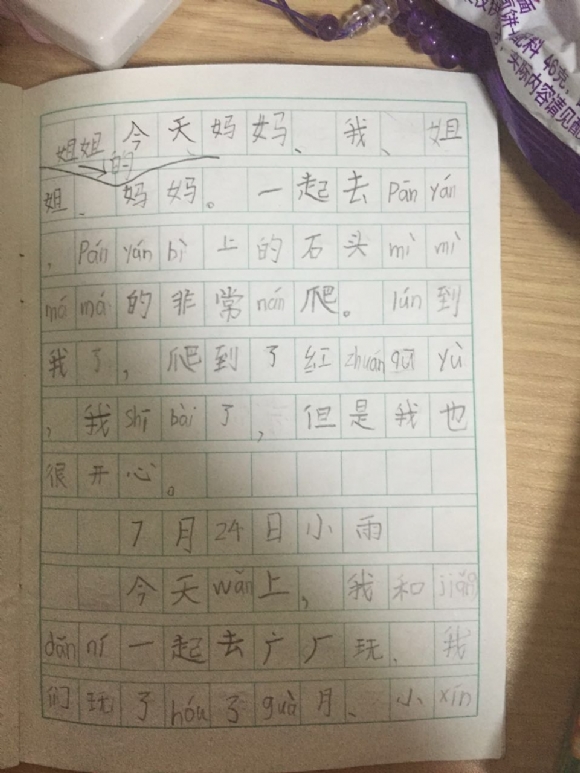 科 46克,
实际内容请见
姐姐
的
今天、妈妈、我、姐
姐、妈妈。一起去Pān yán
,Pán yán bì上的石头mì mì
má má的非常nán爬。lún到
我了,爬到了红zhuán qū yù
,我shī bài了,但是我也
很开心。
7月24日小雨
今天wǎn上,我和jiǎng
dān ní一起去广厂玩、我
们玩了hóu了guà月、小xīn